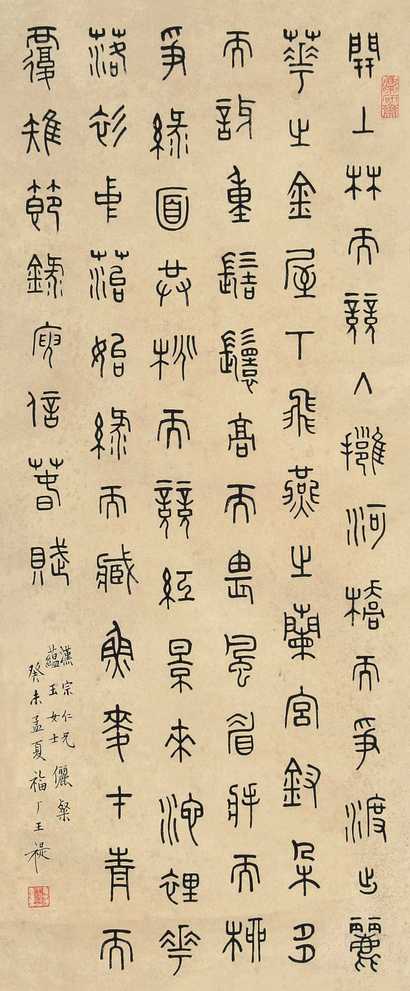 開上林而競入擁河橋而爭渡出麗
華之金屋下飛燕之蘭宮釵朵多
而訝重髻鬟高而畏風眉將而柳
爭綠面共桃而競紅景來池裡華
落衫中菭始綠而臧魚麥才青而
覆雉節錄庾信萅賦
漢宗仁兄
蘊玉女士儷粲
癸未孟夏福厂王禔